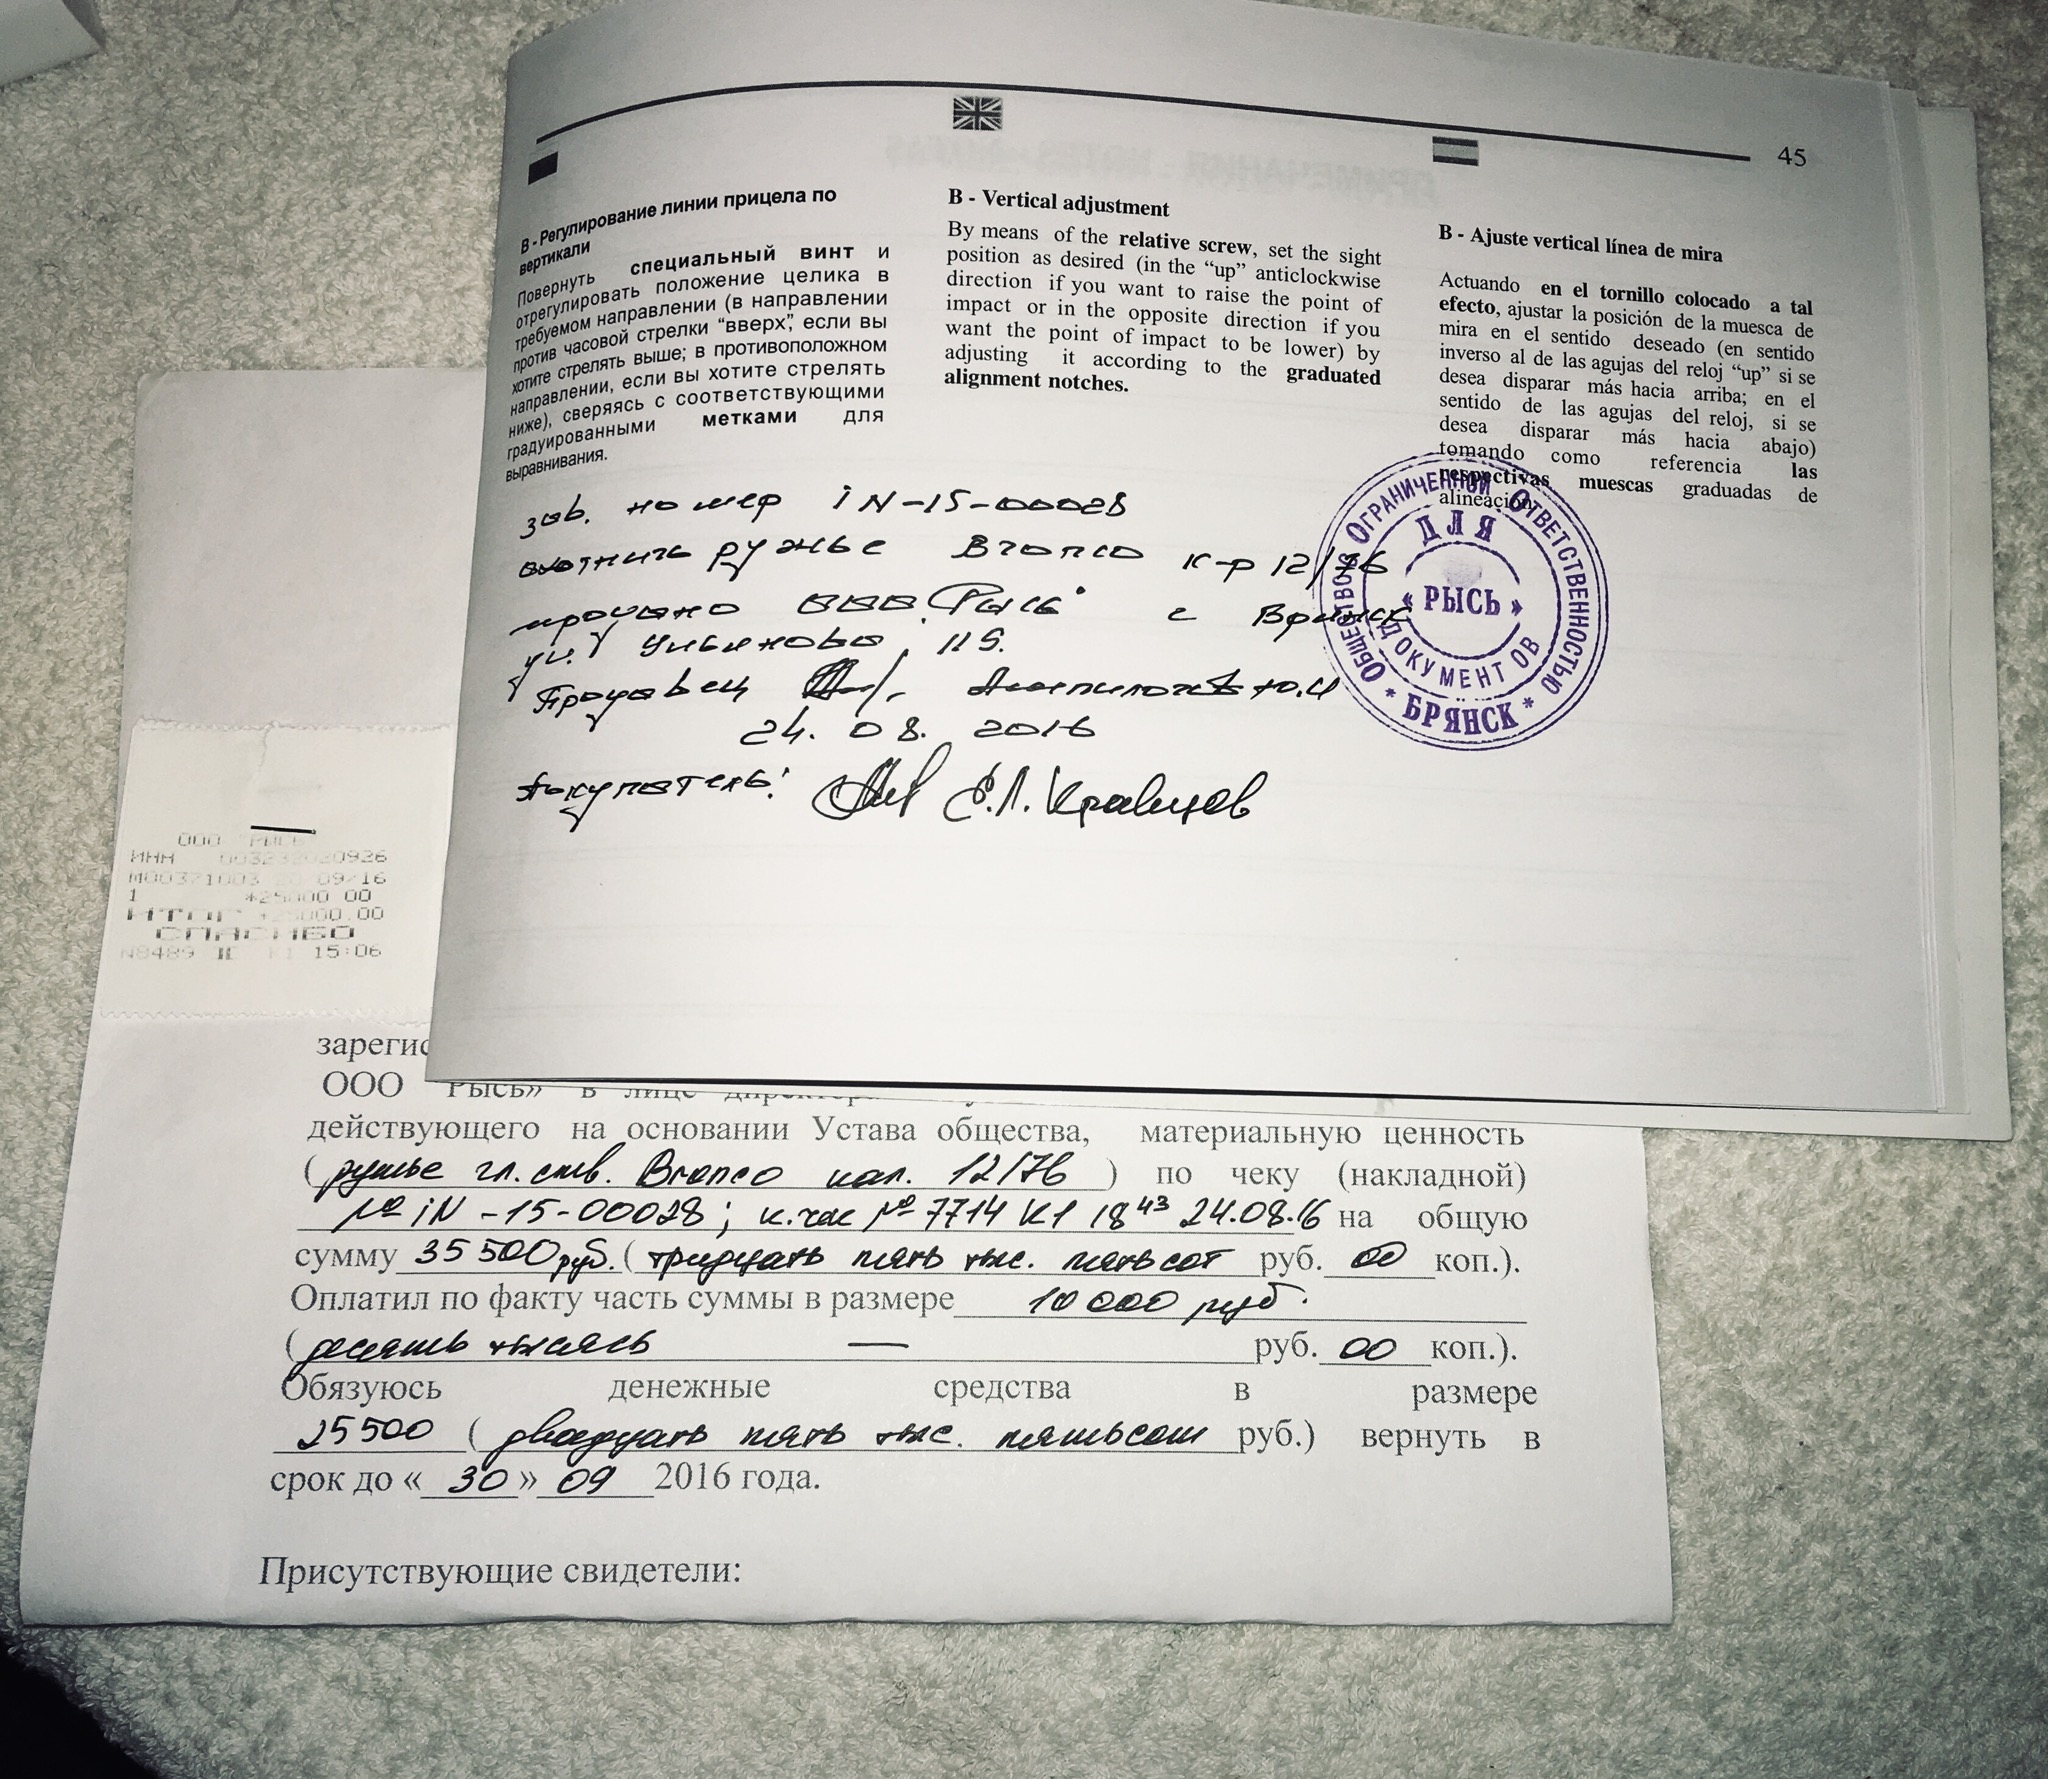 45
В - Регулирование линии прицела по
вертикали
Повернуть специальный винт и
отрегулировать положение целика в
требуемом направлении (в направлении
против часовой стрелки “вверх”, если вы
хотите стрелять выше; в противоположном
направлении, если вы хотите стрелять
ниже), сверяясь с соответствующими
градуированными метками для
выравнивания.
B - Vertical adjustment
By means of the relative screw, set the sight
position as desired (in the “up” anticlockwise
direction if you want to raise the point of
impact or in the opposite direction if you
want the point of impact to be lower) by
adjusting it according to the graduated
alignment notches.
B - Ajuste vertical línea de mira
Actuando en el tornillo colocado a tal
efecto, ajustar la posición de la muesca de
mira en el sentido deseado (en sentido
inverso al de las agujas del reloj “up” si se
desea disparar más hacia arriba; en el
sentido de las agujas del reloj, si se
desea disparar más hacia abajo)
tomando como referencia las
respectivas muescas graduadas de
alineación.
зав. номер iN-15-00028
охотнич ружье Bronco к-р 12/76
продано ООО "Рысь" г Брянск
ул. Ульянова 115.
Продавец Ю.И
24. 08. 2016
Покупатель: Е.Л. Кравцов
Общество Ограниченной Ответственностью
ДЛЯ
« РЫСЬ »
ДОКУМЕНТОВ
* БРЯНСК *
ООО "РЫСЬ"
ИНН
09/16
1 *25000 00
ИТОГ 25000.00
СПАСИБО
N8489 К1 15:06
зарегис
ООО Рысь» в лице директора
действующего на основании Устава общества, материальную ценность
( ружье гл. ств. Bronco кал. 12/76 ) по чеку (накладной)
№ iN -15-00028; к.чек № 7714 К1 18 43 24.08.16 на общую
сумму 35 500 руб. ( тридцать пять тыс. пятьсот руб. 00 коп.).
Оплатил по факту часть суммы в размере 10 000 руб.
( десять тысячь — руб. 00 коп.).
Обязуюсь денежные средства в размере
25 500 ( двадцать пять тыс. пятьсот руб.) вернуть в
срок до « 30 » 09 2016 года.
Присутствующие свидетели: